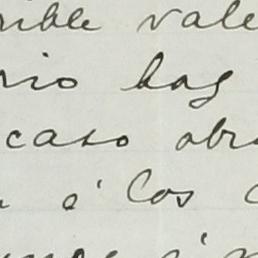 rible vale
rio hay
caso obr
á los